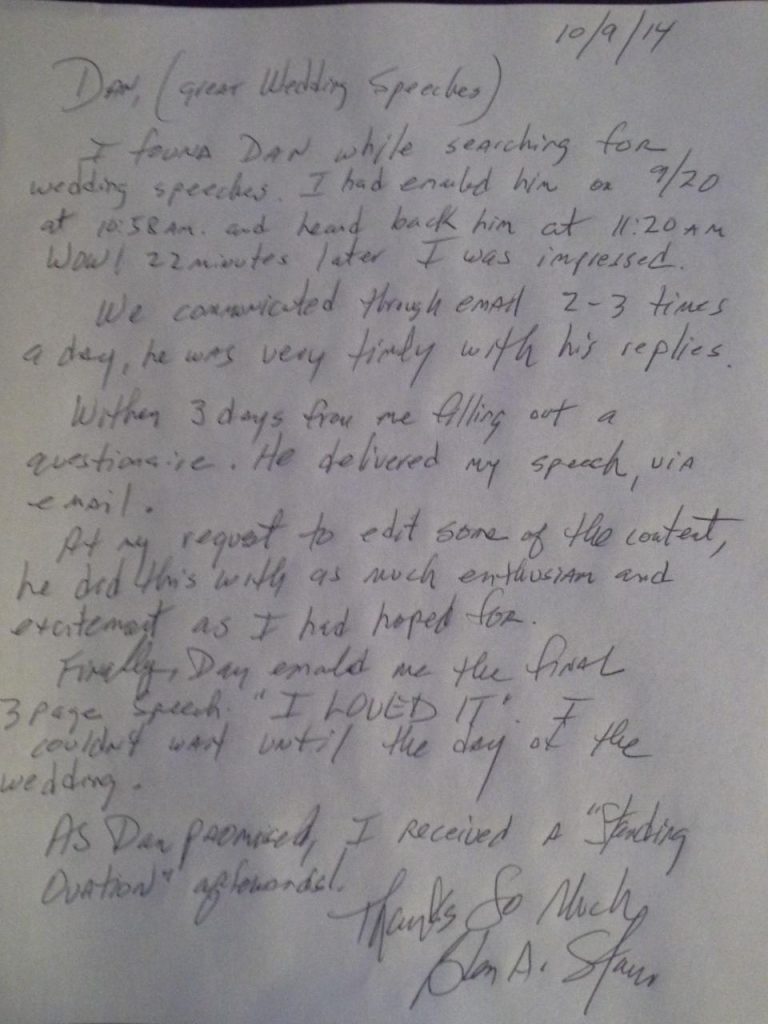 10/9/14
Dan, (Great Wedding Speeches)
I found Dan while searching for
wedding speeches. I had emaild him on 9/20
at 10:58 AM. and heard back him at 11:20 AM
Wow! 22 minutes later I was impressed.
We communicated through email 2-3 times
a day, he was very timly with his replies.
Within 3 days from me filling out a
questionaire. He delivered my speech, via
email.
At my request to edit some of the content,
he did this with as much enthusiam and
excitement as I had hoped for.
Finally, Dan emaild me the final
3 page speech. "I LOVED IT". I
couldn't wait until the day of the
wedding.
As Dan promised, I received a "Standing
Ovation" afterwards!
Thanks So Much,
A.